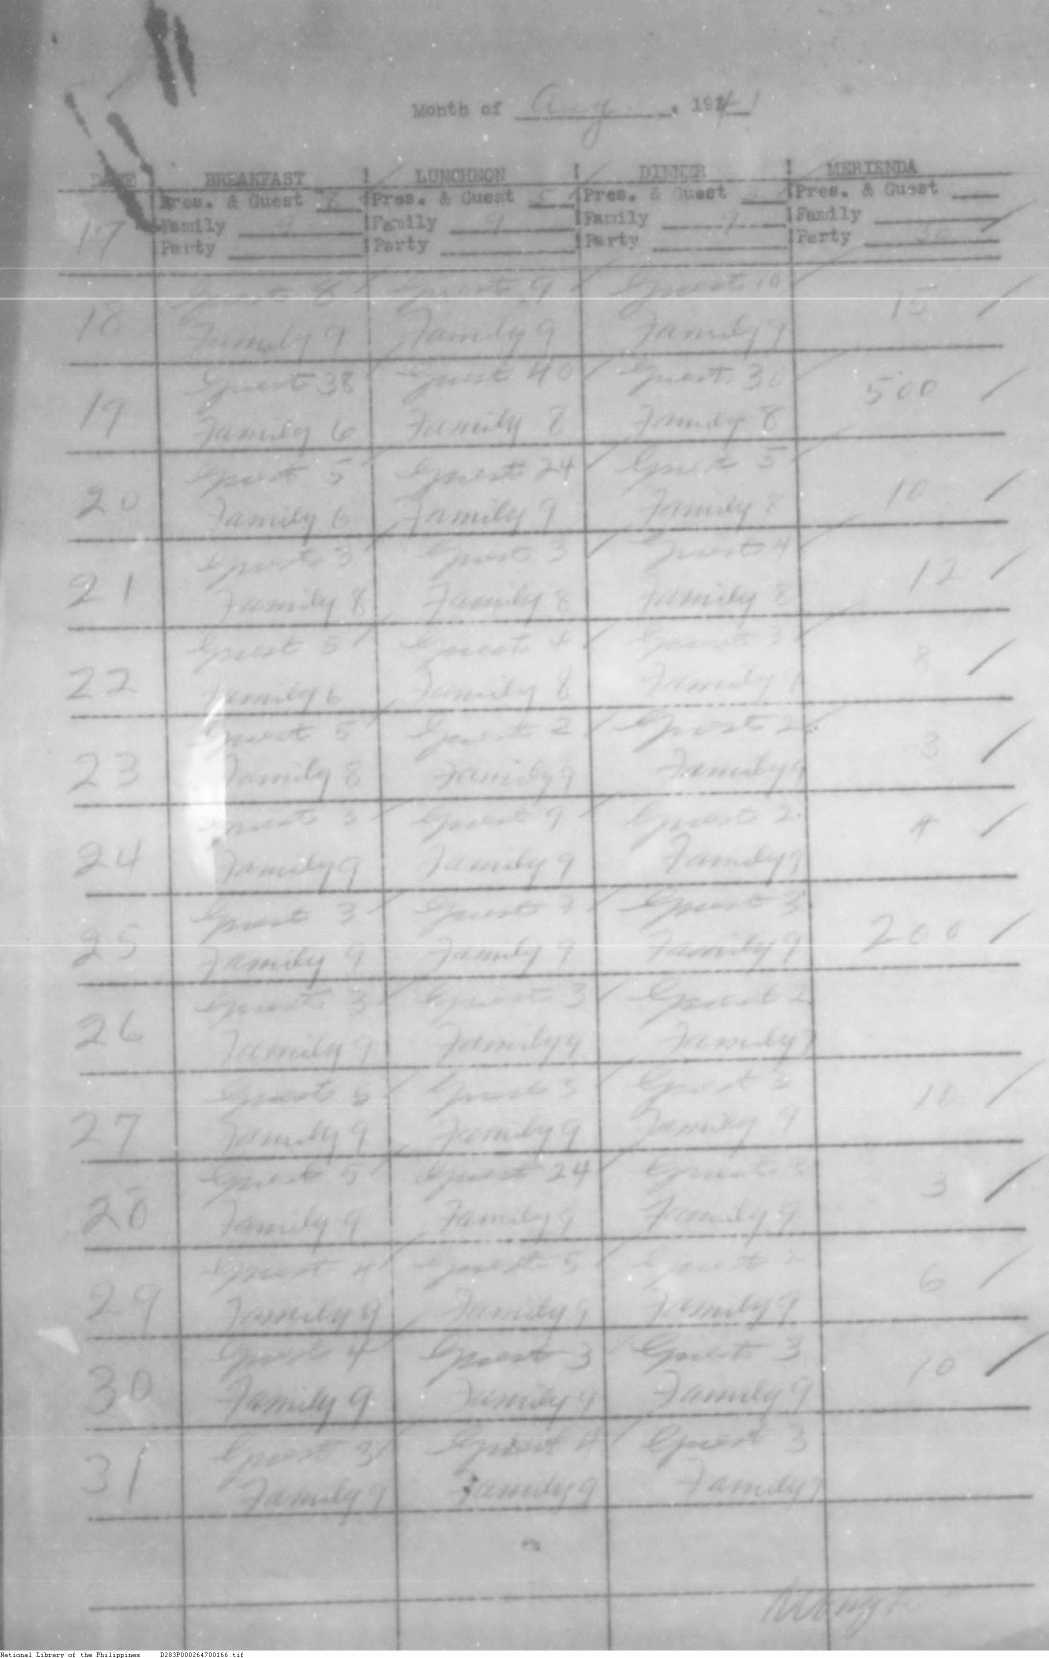 Month of Aug. , 1941
DATE BREAKFAST ! LUNCHEON ! DINNER ! MERIENDA
Pres. & Guest 8 Pres. & Guest 5 Pres. & Guest Pres. & Guest
17 Family 9 Family 9 Family 9 Family
Party Party Party Party 30
Guest 8 Guests 9 Guest 10
18 15
Family 9 Family 9 Family 9
Guest 38 Guest 40 Guest 30
19 500
Family 6 Family 8 Family 8
Guest 5 Guest 24 Guest 5
20 10
Family 6 Family 9 Family 8
Guest 3 Guest 3 Guest 4
21 12
Family 8 Family 8 Family 8
Guest 5 Guest 4 Guest 3
22 8
Family 6 Family 8 Family
Guest 5 Guest 2 Guest 2
23 3
Family 8 Family 9 Family 9
Guest 3 Guest 9 Guest 2
24 4
Family 9 Family 9 Family 9
Guest 3 Guest 3 Guest 3
25 200
Family 9 Family 9 Family 9
Guest 3 Guest 3 Guest 2
26
Family 9 Family 9 Family 9
Guest 5 Guest 3 Guest 3
27 10
Family 9 Family 9 Family 9
Guest 5 Guest 24 Guest 3
28 3
Family 9 Family 9 Family 9
Guest 4 Guest 5 Guest 2
29 6
Family 9 Family 9 Family 9
Guest 4 Guest 3 Guest 3
30 10
Family 9 Family 9 Family 9
Guest 3 Guest 4 Guest 3
31
Family 9 Family 9 Family 9
National Library of the Philippines D283P000264700166.tif